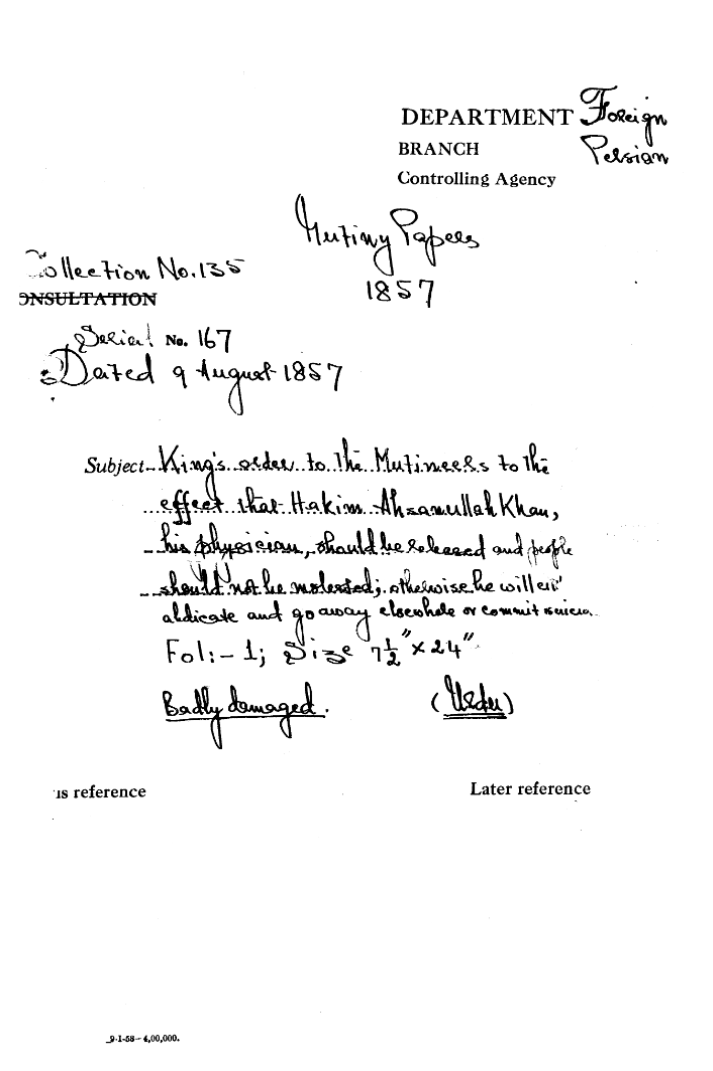 DEPARTMENT Foreign
BRANCH Persian
Controlling Agency
Mutiny Papers
1857
Collection No. 135
ONSULTATION
Serial No. 167
Dated 9 August 1857
Subject King's order to the Mutineers to the
effect that Hakim Ahsanullah Khan,
his physician, should be released and people
should not be molested; otherwise he will
abdicate and go away elsewhere or commit suici
Fol:- 1; Size 7½" × 24"
Badly damaged. (Urdu)
us reference Later reference
9-1-58—4,00,000.